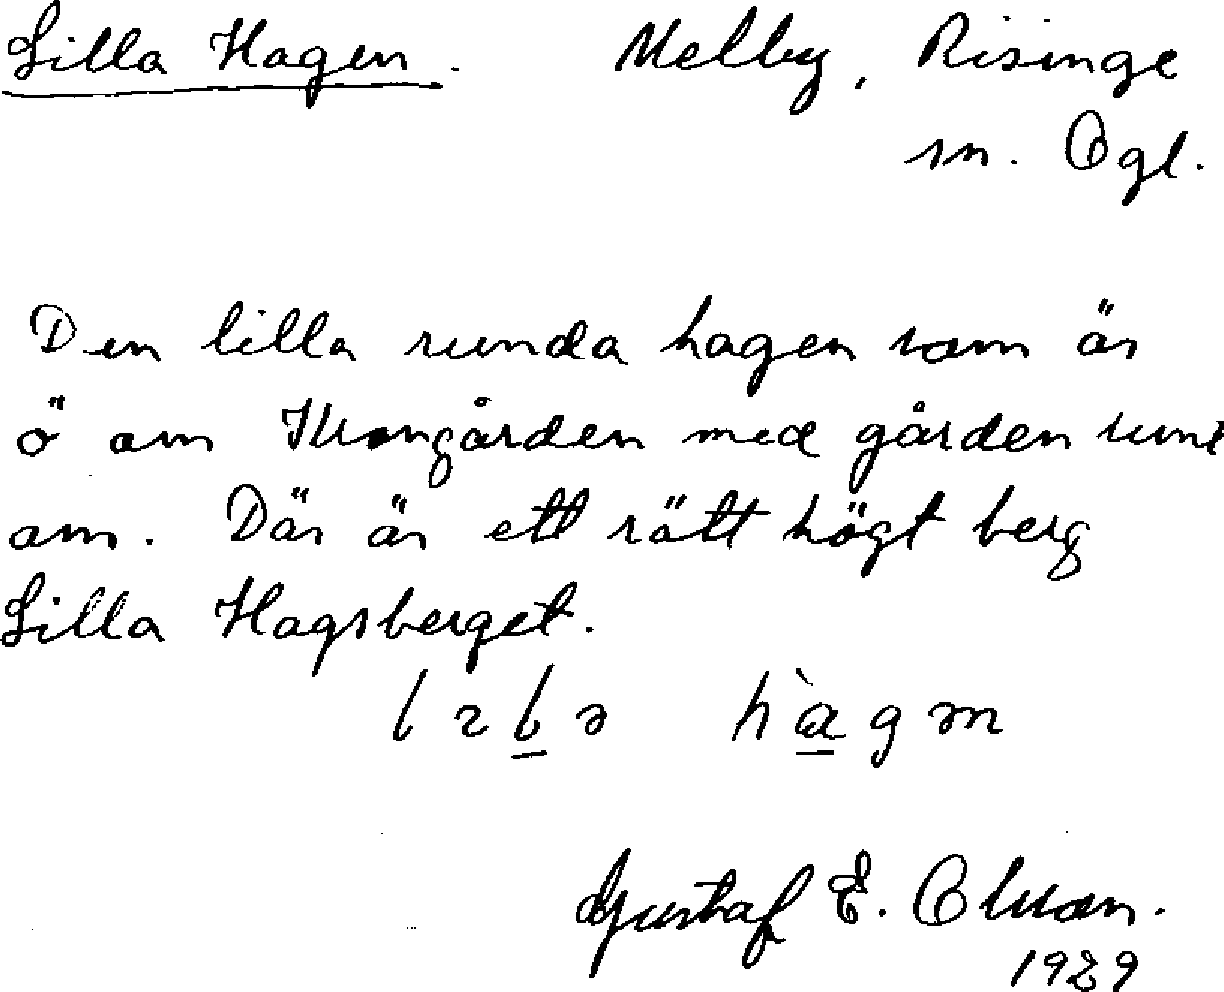 Lilla Hagen. Melby, Risinge
sn. Ögl.
Den lilla runda hagen som är
ö om Krongården med gården runt
om. Där är ett rätt högt berg
Lilla Hagsberget.
Gustaf E. Olsson.
1929